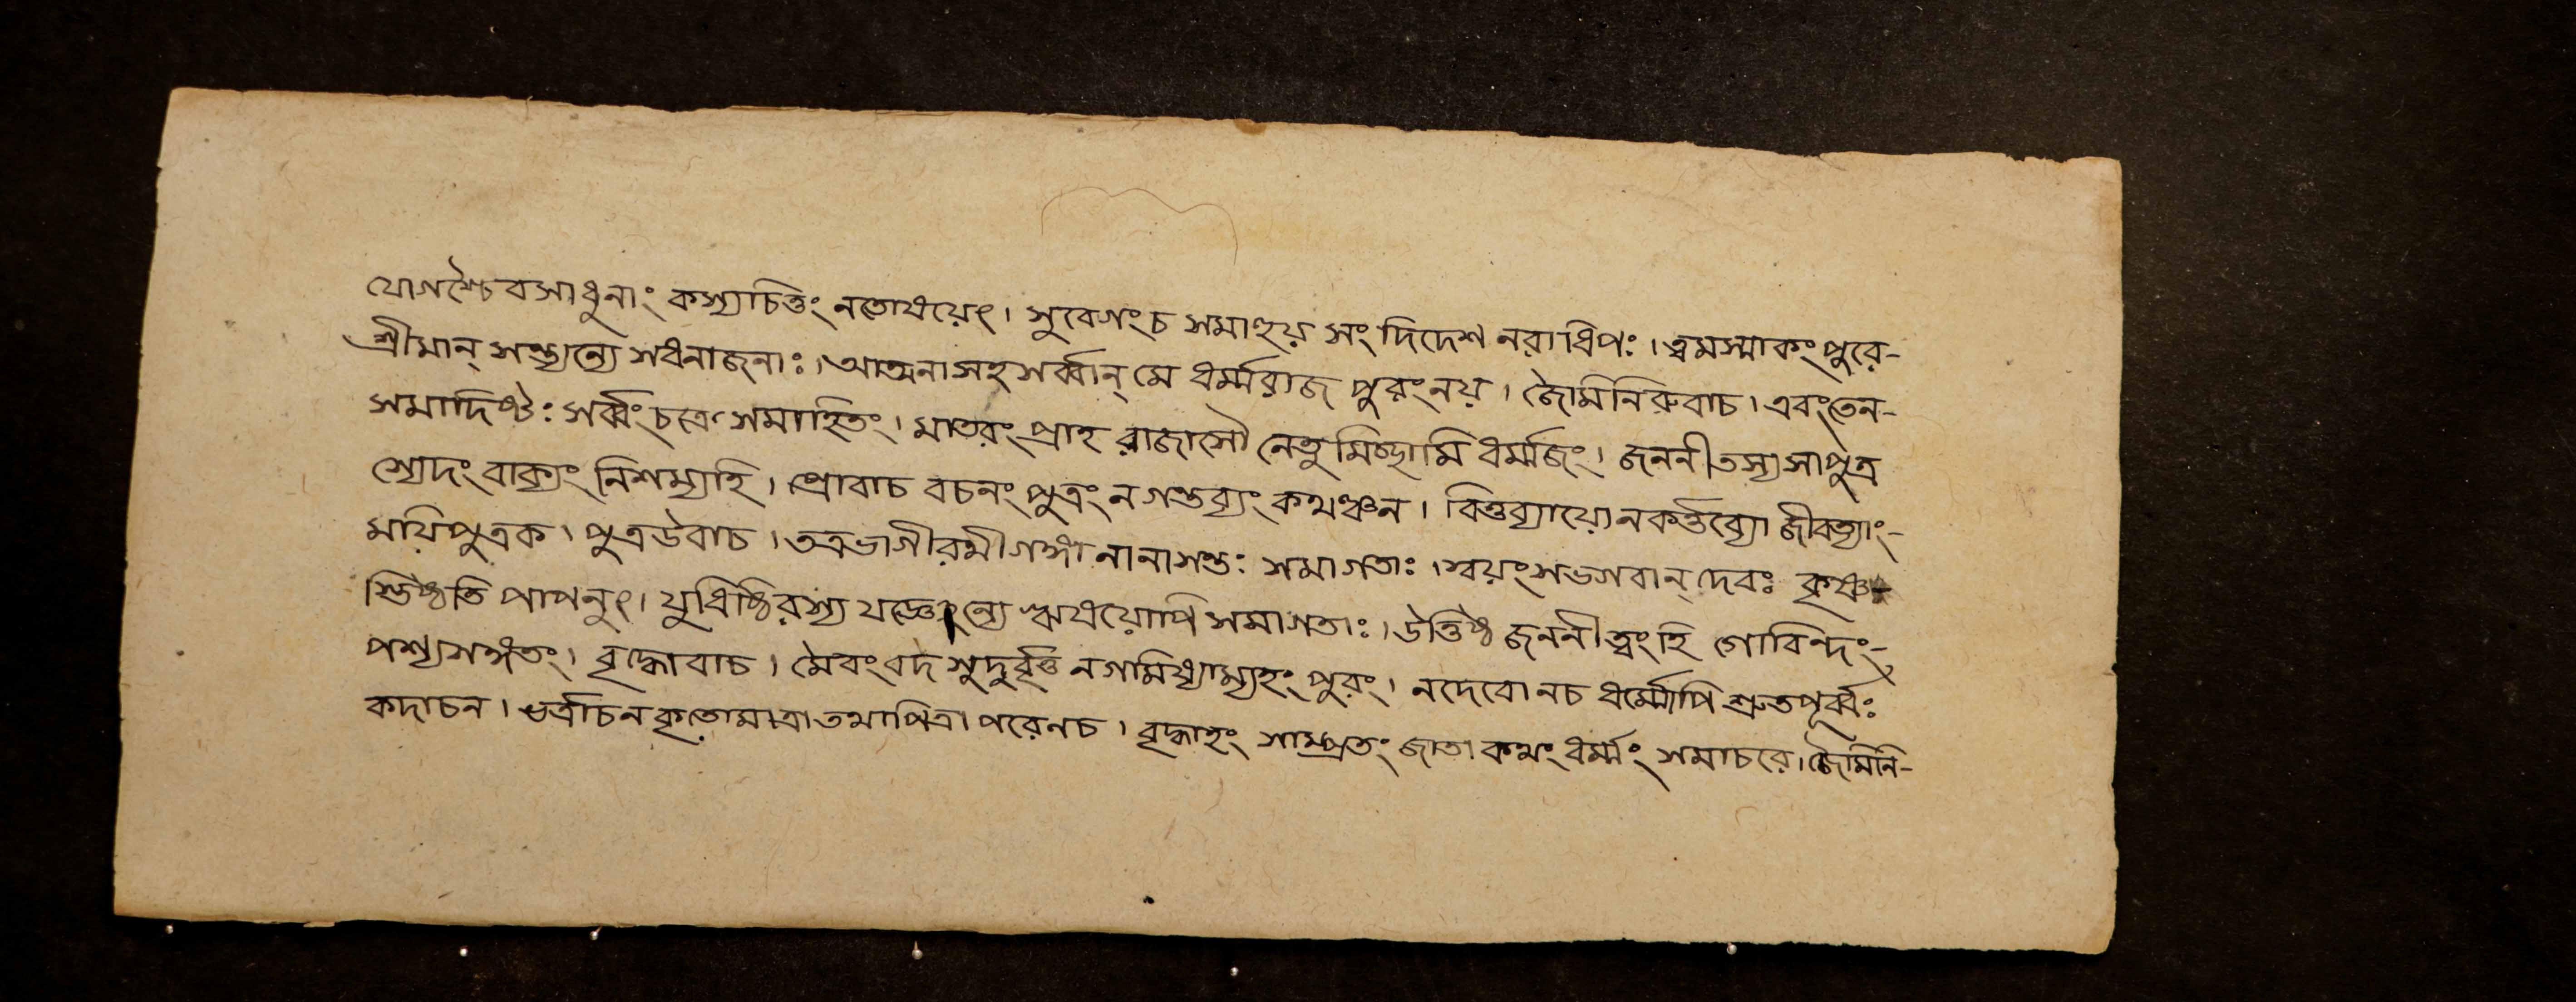 যোগশ্চৈবসাধুনাং কস্যচিত্তং নতোষয়েৎ। সুবেগংচ সমাহুয় সংদিদেশ নরাধিপঃ। ত্বমস্মাকং পুরে-
শ্রীমান্ সন্ত্যন্যে সধনাজনাঃ। আত্মনাসহসর্ব্বান্ মে ধর্ম্মরাজ পুরংনয়। জৈমিনিরুবাচ। এবংতেন-
সমাদিষ্টঃ সর্ব্বং চক্রে সমাহিতং। মাতরং প্রাহ রাজাসৌ নেতুমিচ্ছামি ধর্ম্মজং। জননী তস্যসাপুত্র
স্যেদং বাক্যং নিশম্যহি। প্রোবাচ বচনং পুত্রং ন গন্তব্যং কথঞ্চন। বিত্তব্যায়োনকর্ত্তব্যো জীবত্যাং-
ময়িপুত্রক। পুত্রউবাচ। তত্রভাগীরথীগঙ্গা নানাসন্তঃ সমাগতাঃ। স্বয়ংসভগবান্ দেবঃ কৃষ্ণ-
স্তিষ্ঠতি পাপনুৎ। যুধিষ্ঠিরস্য যজ্ঞেন্যে ঋষয়োপি সমাগতাঃ। উত্তিষ্ঠ জননীত্বংহি গোবিন্দং-
পশ্যসঙ্গতং। বৃদ্ধোবাচ। মৈবংবদ সুদুর্বৃত্ত নগমিষ্যাম্যহং পুরং। নদেবো নচ ধর্ম্মোপি শ্রুতপূর্ব্বঃ
কদাচন। ভর্ত্রাচনকৃতোমাত্রা তথাপিত্রা পরেনচ। বৃদ্ধাহং সাম্প্রতং জাতা কথং ধর্ম্মং সমাচরে। জৈমিনি-